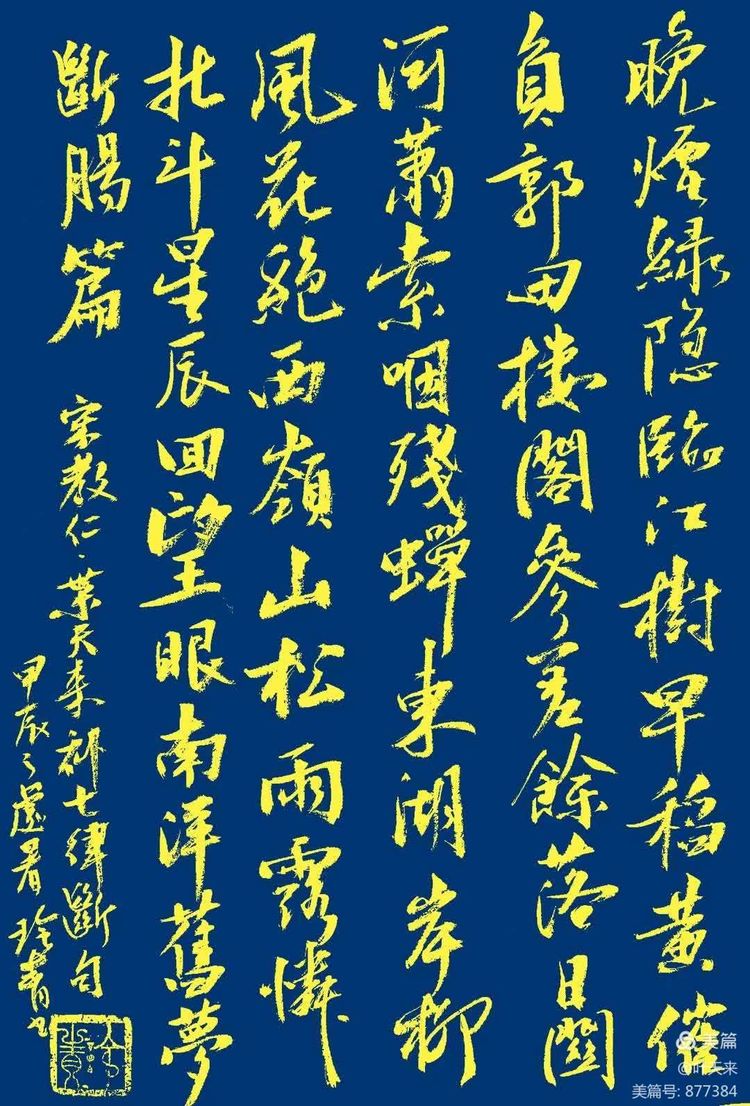 晚煙綠隐臨江樹早稻黃催
負郭田樓閣參差餘落日關
河蕭索咽殘蟬東湖岸柳
風花西嶺山松雨露憐
北斗星辰回望眼南洋舊夢
斷腸篇
宋教仁、葉天来七律斷句
甲辰之處暑
美篇
@叶天来
美篇号: 877384